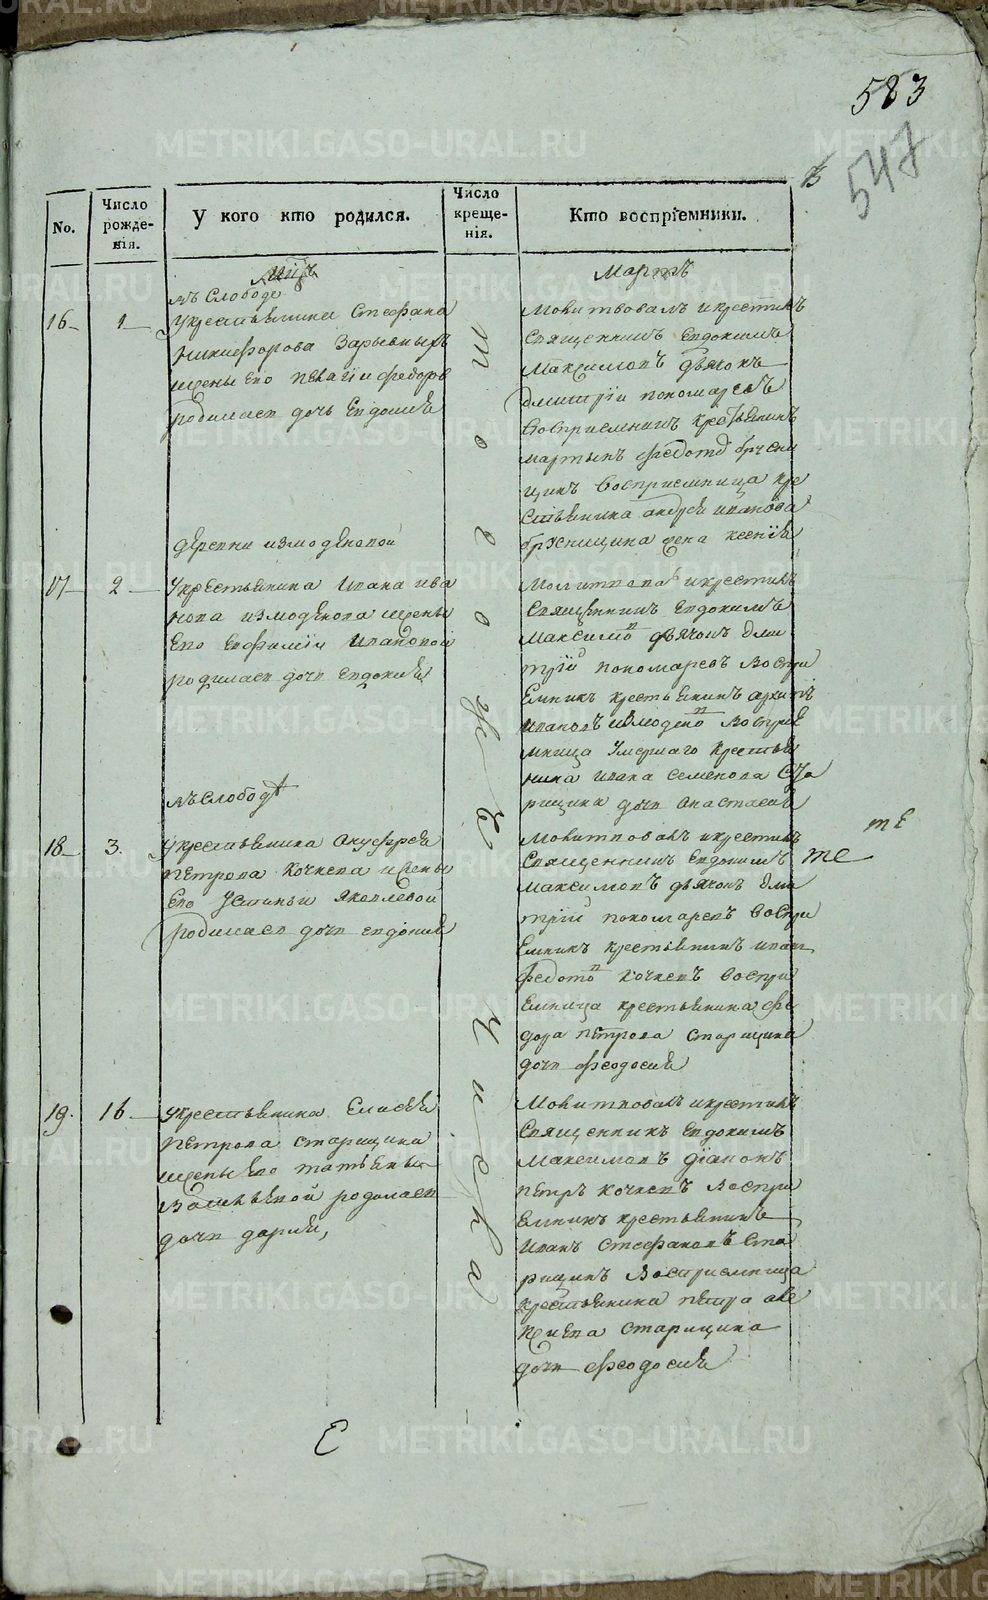 583
547
No.
Число рожденія.
У кого кто родился.
Число крещенія.
Кто воспріемники.
Мартъ
въ Слободе
16
1
Укрестьянина Стефана
Никифорова Зарывныхъ
жены Его Пелагіи Федоров
родилась дочь Евдокиѣ
тогоже Числа
Молитвовалъ икрестилъ
Священникъ Евдокимъ
Максимовъ дьячокъ
дмитріи пономаревъ
Восприемникъ крестьянинъ
мартынъ Федотов брусни
цинъ Восприемница кре
стьянина андрея иванова
брусницина жена ксения
деревни измоденовой
17
2
Укрестьянина Ивана ива
нова измоденова жены
Его Евфиміи Ивановой
родилась дочь Евдокия
Молитвова икрестилъ
Священникъ Евдокимъ
Максимов дьячокъ дми
трій пономаревъ Воспри
Емникъ крестьянинъ
Ивановъ измоденов Восприе
мница Умершаго Крестья
нина Ивана Семенова Ста
рицина дочь Анастасия
въ Слободѣ
18
3.
Укрестьянина Онуфрея
Петрова Кочнева жены
Его Устиньи Яковлевой
родилась дочь Евдокия
Молитвовалъ икрестилъ
Священникъ Евдокимъ
Максимовъ дьячокъ дми
трій пономаревъ Воспри
Емникъ крестьянинъ иванъ
Федотов Кочневъ Воспри
Емница крестьянина Фе
дора Петрова Старицина
дочь Феодосия
те
те
19.
16
Укрестьянина Елисея
Петрова Старицина
жены Его татьяны
Васильевой родилась
дочь дария,
Молитвовалъ икрестилъ
Священникъ Евдокимъ
Максимовъ діаконъ
Петръ Кочневъ Воспри
Емникъ крестьянинъ
Иванъ Стефановъ Ста
рицинъ Восприемница
крестьянина Петра Але
ксиева Старицина
дочь Феодосия
METRIKI.GASO-URAL.RU